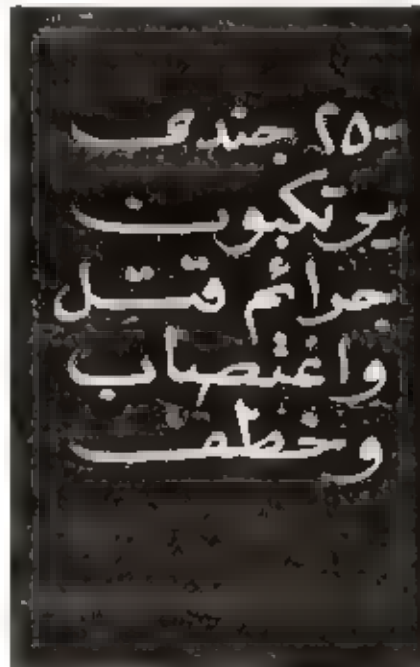 ٢٥٠
يرتكبون
جرائم قتل
واغتصاب
وخطف